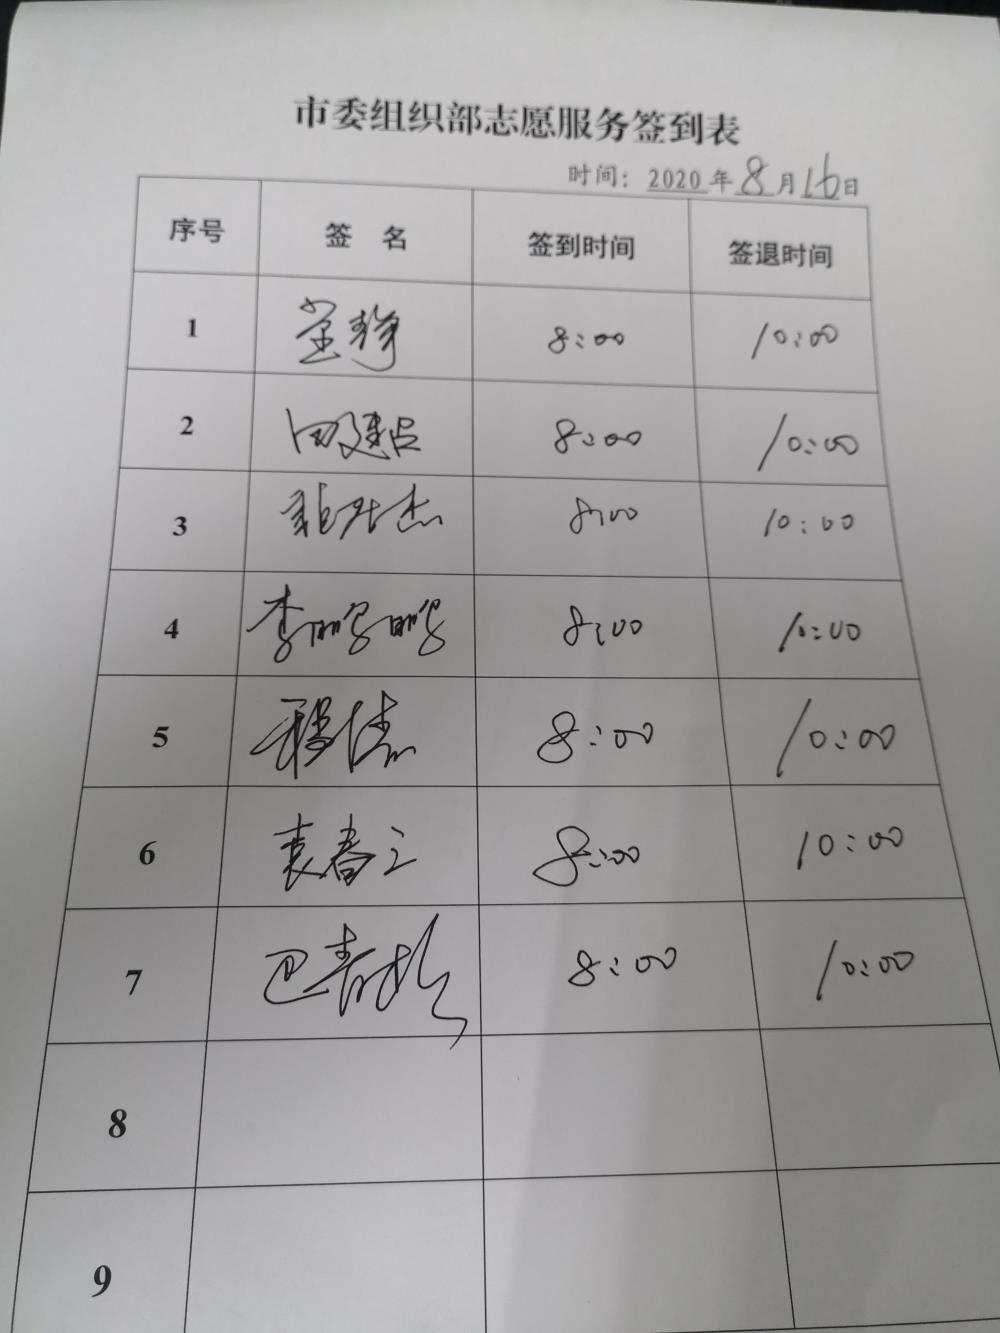 市委组织部志愿服务签到表
时间：2020年8月16日
序号 签 名 签到时间 签退时间
1 8:00 10:00
2 田建 8:00 10:00
3 杰 8:00 10:00
4 李鹏鹏 8:00 10:00
5 8:00 10:00
6 袁春 8:00 10:00
7 巴青 8:00 10:00
8
9